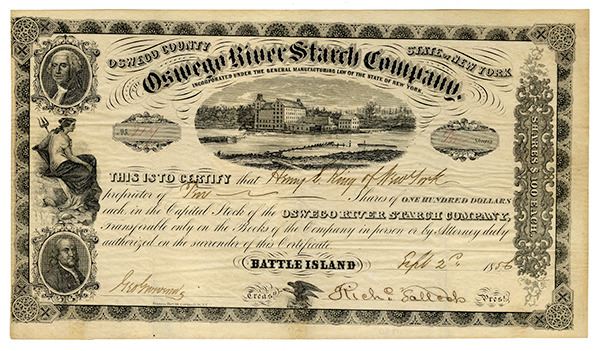 OSWEGO COUNTY STATE OF NEW YORK
Oswego River Starch Company.
INCORPORATED UNDER THE GENERAL MANUFACTURING LAW OF THE STATE OF NEW YORK
No.
Shares
THIS IS TO CERTIFY that Henry C. King of New York
proprietor of Shares of ONE HUNDRED DOLLARS
each, in the Capital Stock of the OSWEGO RIVER STARCH COMPANY,
Transferable only on the Books of the Company in person or by Attorney duly
authorized on the surrender of this Certificate.
BATTLE ISLAND Sept 2d 1856
Treas. Pres.
SHARES $100 EACH